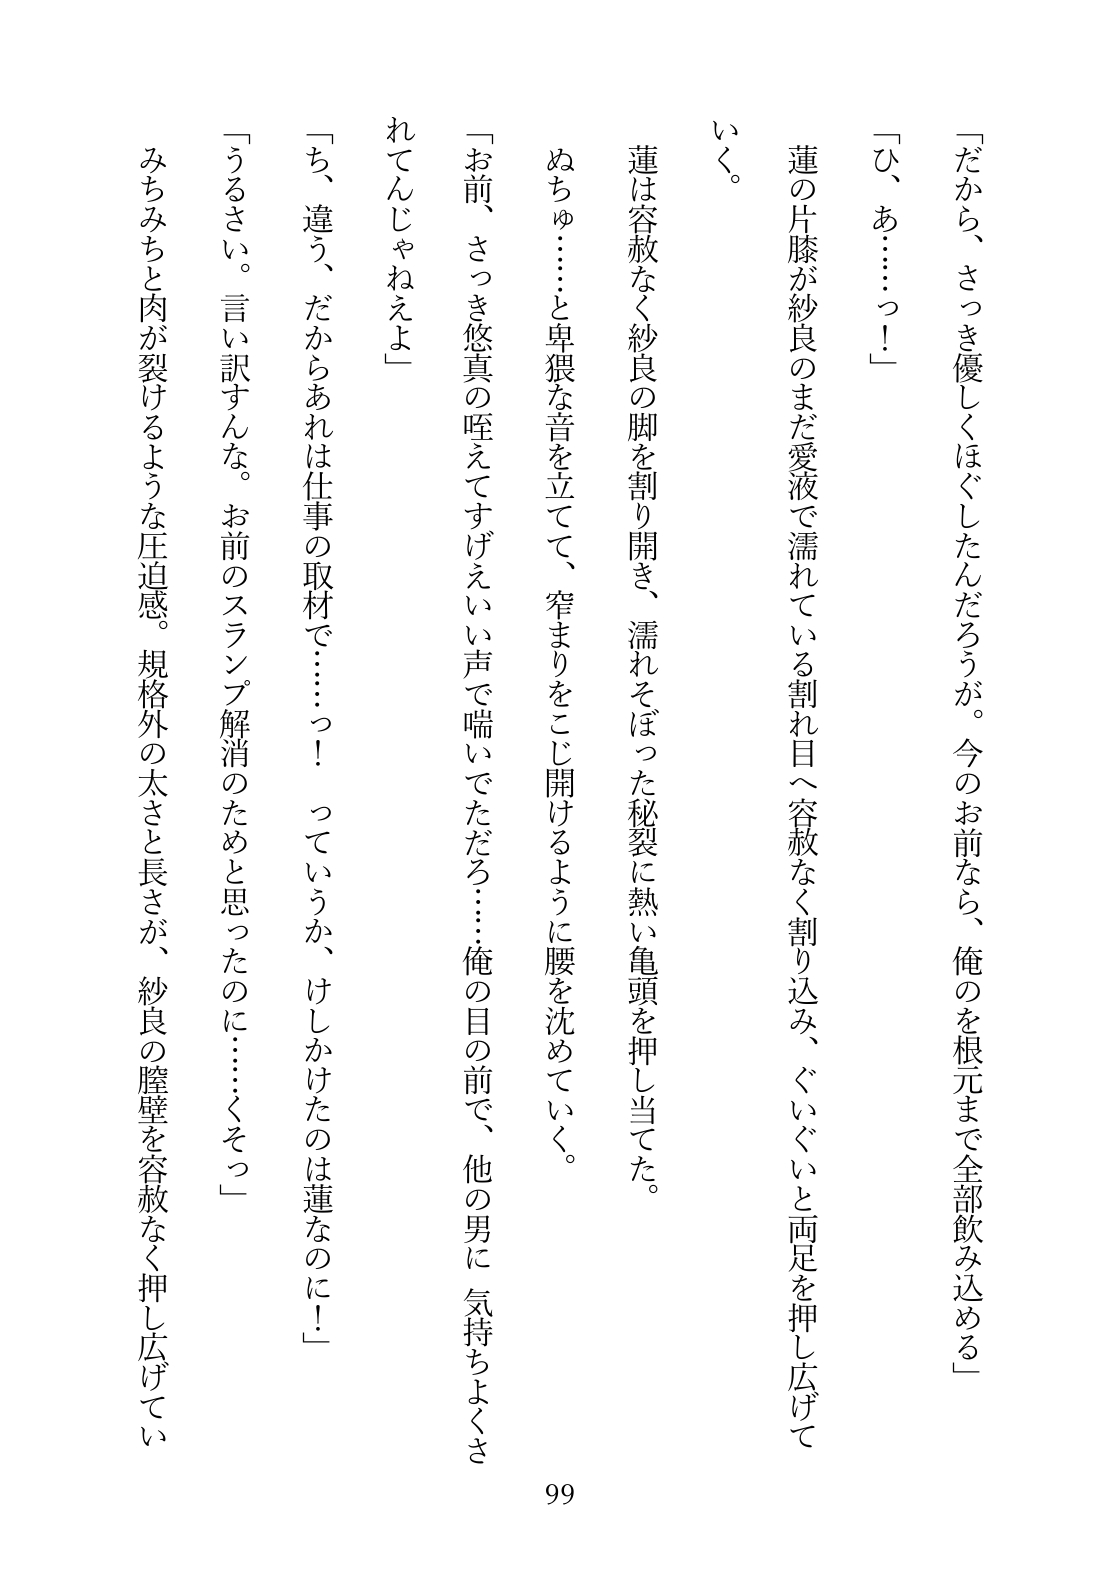 「だから、さっき優しくほぐしたんだろうが。今のお前なら、俺のを根元まで全部飲み込める」
「ひ、あ……っ！」
　蓮の片膝が紗良のまだ愛液で濡れている割れ目へ容赦なく割り込み、ぐいぐいと両足を押し広げて
いく。
　蓮は容赦なく紗良の脚を割り開き、濡れそぼった秘裂に熱い亀頭を押し当てた。
　ぬちゅ……と卑猥な音を立てて、窄まりをこじ開けるように腰を沈めていく。
「お前、さっき悠真の咥えてすげえいい声で喘いでただろ……俺の目の前で、他の男に 気持ちよくさ
れてんじゃねえよ」
「ち、違う、だからあれは仕事の取材で……っ！　っていうか、けしかけたのは蓮なのに！」
「うるさい。言い訳すんな。お前のスランプ解消のためと思ったのに……くそっ」
　みちみちと肉が裂けるような圧迫感。規格外の太さと長さが、紗良の膣壁を容赦なく押し広げてい
99